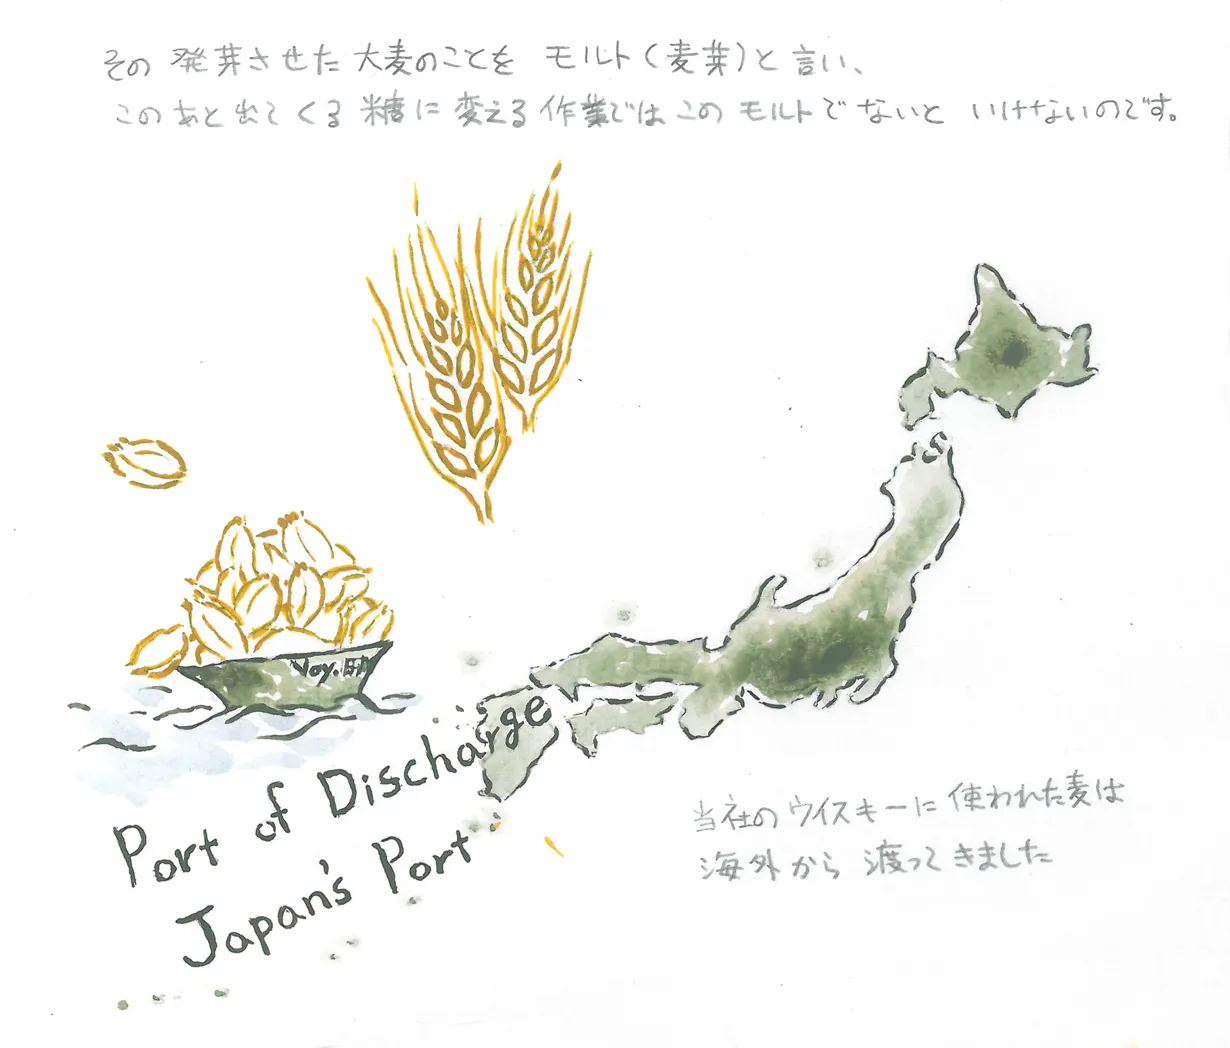 その発芽させた大麦のことを モルト(麦芽)と言い、
このあと出てくる糖に変える作業では このモルトでないと いけないのです。
Voy.
Port of Discharge
Japan's Port
当社のウイスキーに使われた麦は
海外から 渡ってきました